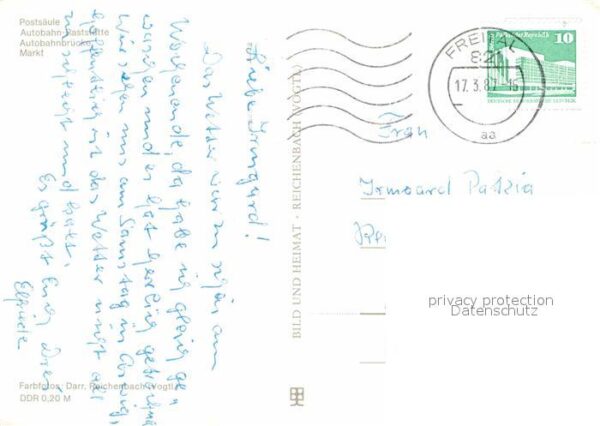 Postsäule
Autobahn-Raststätte
Autobahnbrücke
Markt
Liebe Irmgard!
Das Wetter war so schön am
Wochenende, da habe ich gleich ge-
waschen und es hat herrlich getrocknet
Wir sehen uns am Samstag in
hoffentlich ist das Wetter nicht
und kalt.
Es grüßt Euch
Elfriede
Farbfotos: Darr, Reichenbach (Vogtl.)
DDR 0,20 M
BILD UND HEIMAT · REICHENBACH (VOGTL)
FREITAL
821
17.3.87-15
aa
Palast der Republik
10
DEUTSCHE DEMOKRATISCHE REPUBLIK
Frau
Irmgard Patzia
privacy protection
Datenschutz